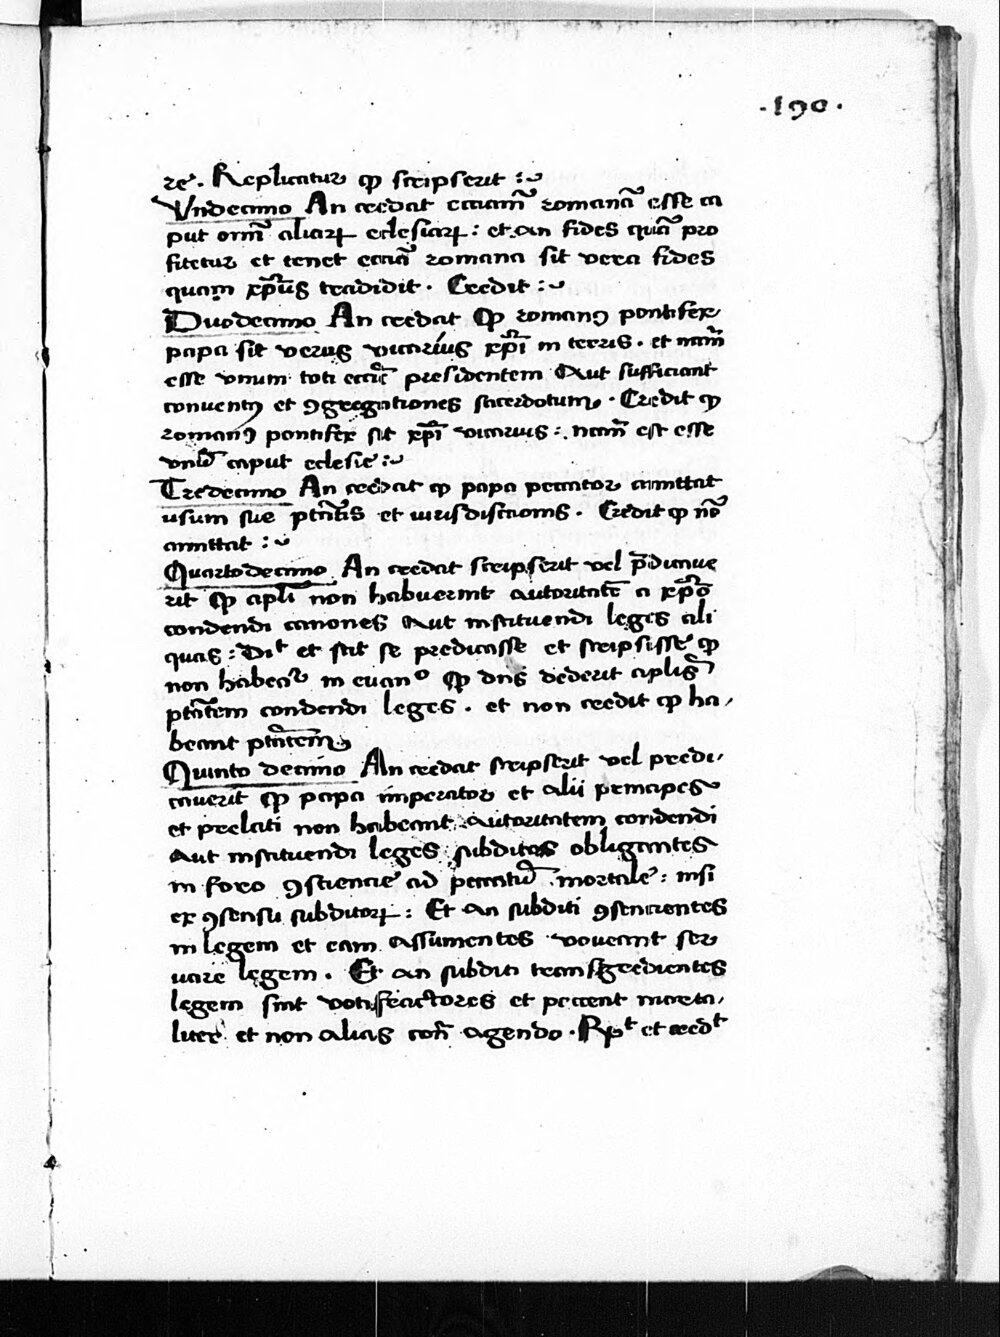 ·190·
re. Replicatur ꝙ scripserit :~
Undecimo An credat ecciam̄ romanā esse ca
put om̄ aliarꝝ eclesiarꝝ : et an fides quā pro
fitetur et tenet ecciā romana sit vera fides
quam xp̄us tradidit . Credit :~
Duodecimo An credat ꝙ romanꝰ pontifex
papa sit verus vicarius xp̄i in terris . et necm̄
esse unum toti eccīe presidentem Aut sufficiant
conventꝰ et ꝯgregationes sacerdotum . Credit ꝙ
romanꝰ pontifex sit xp̄i vicarius : necm̄ est esse
unū caput eclesie :~
Tredecimo An credat ꝙ papa peccator amittat
usum sue ptātis et iurisdictionis . Credit ꝙ nō
amittat :~
Quartodecimo An credat scripserit vel p̄dicave
rit ꝙ apl̄i non habuerint autoritatē a xp̄o
condendi canones Aut instituendi leges ali
quas : Dit et scit se predicasse et scripsisse ꝙ
non habetur in evano ꝙ dn̄s dederit aplis̄
ptātem condendi leges . et non credit ꝙ ha,
beant ptātem
Quinto decimo An credat scripserit vel predi,
caverit ꝙ papa imperator et alii principes
et prelati non habeant autoritatem condendi
Aut instituendi leges subditos obligantes
in foro ꝯscientie ad peccatū mortale : nisi
ex ꝯsensu subditorꝝ : Et an subditi ꝯsencientes
in legem et eam assumentes voveant ser
vare legem . Et an subditi transgredientes
legem sint votifractores et peccent morta,
liter et non alias con̄ agendo . Rpt et credt